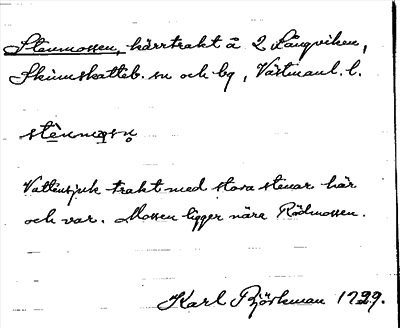 Stenmossen, kärrtrakt å 2 Långviken,
Skinnskatteb. sn och bg, Västmanl. l.
stènmo̱sn̥
Vattensjuk trakt med stora stenar här
och var. Mossen ligger nära Rödmossen.
Karl Björkman 1929.